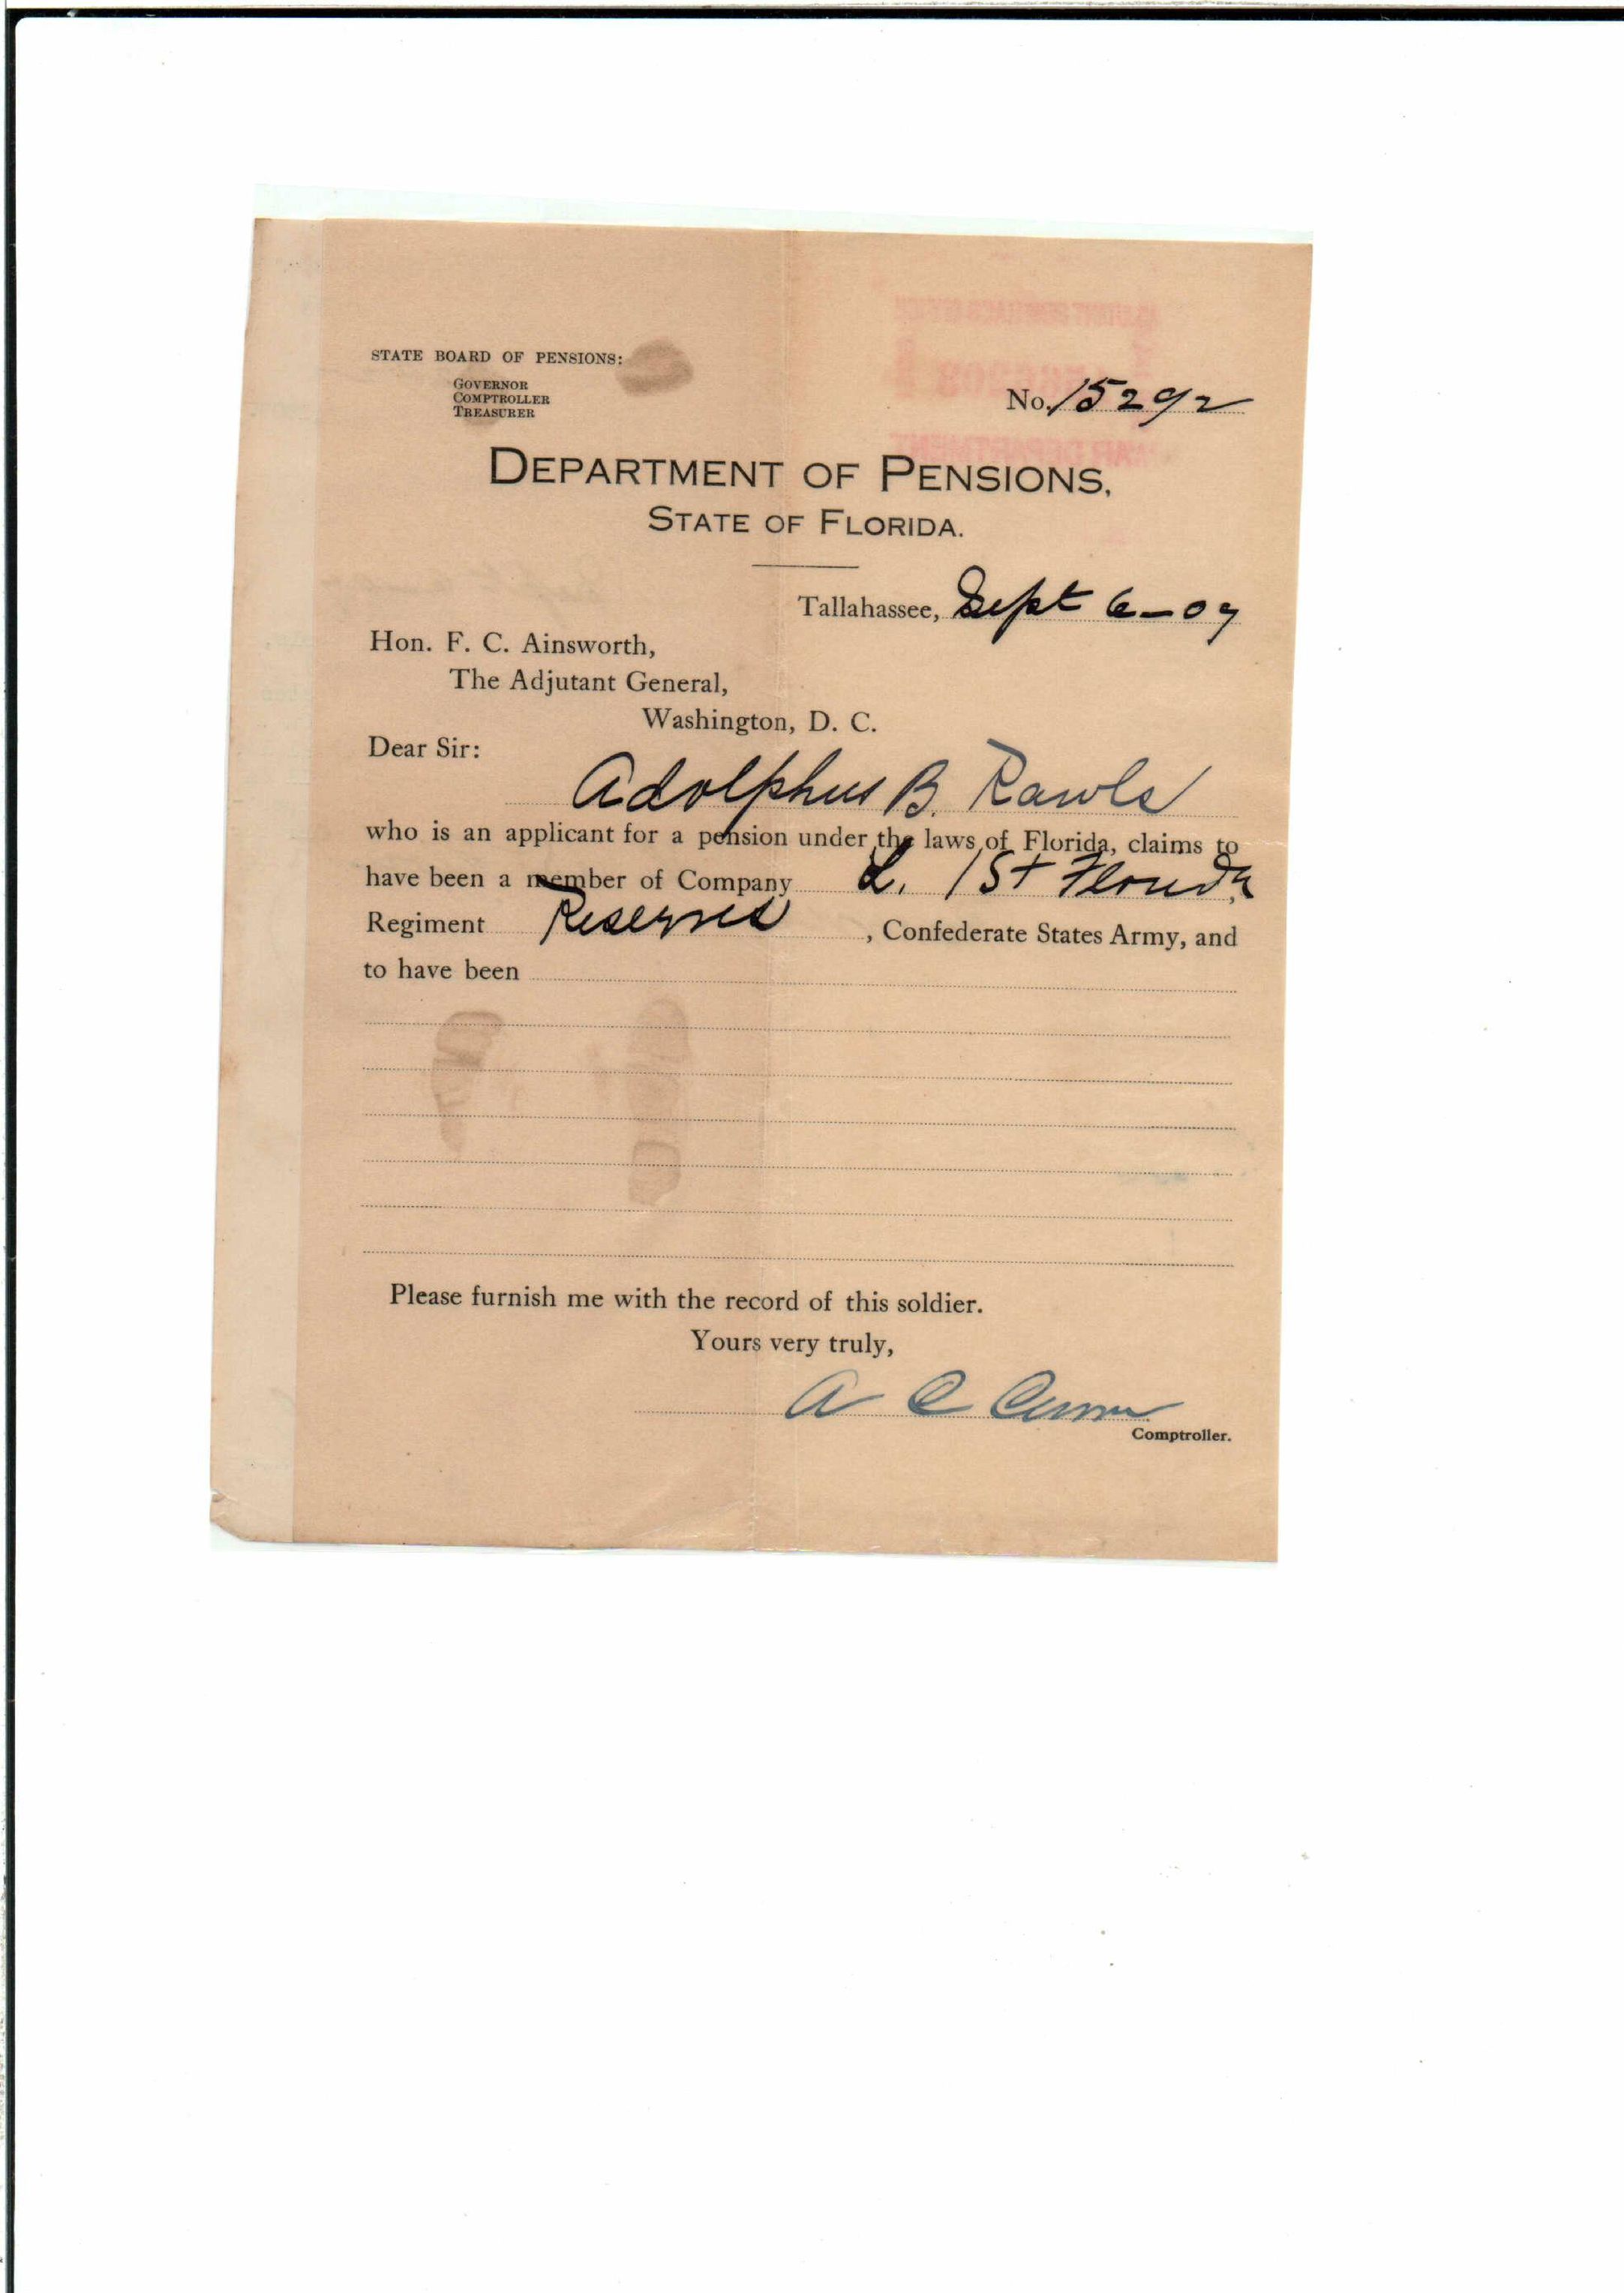 STATE BOARD OF PENSIONS:
GOVERNOR
COMPTROLLER
TREASURER
No. 15292
DEPARTMENT OF PENSIONS,
STATE OF FLORIDA.
Tallahassee, Sept 6-07
Hon. F. C. Ainsworth,
The Adjutant General,
Washington, D. C.
Dear Sir:
Adolphus B. Rawls
who is an applicant for a pension under the laws of Florida, claims to
have been a member of Company L. 1st Florida
Regiment Reserves, Confederate States Army, and
to have been
Please furnish me with the record of this soldier.
Yours very truly,
A C Croom
Comptroller.